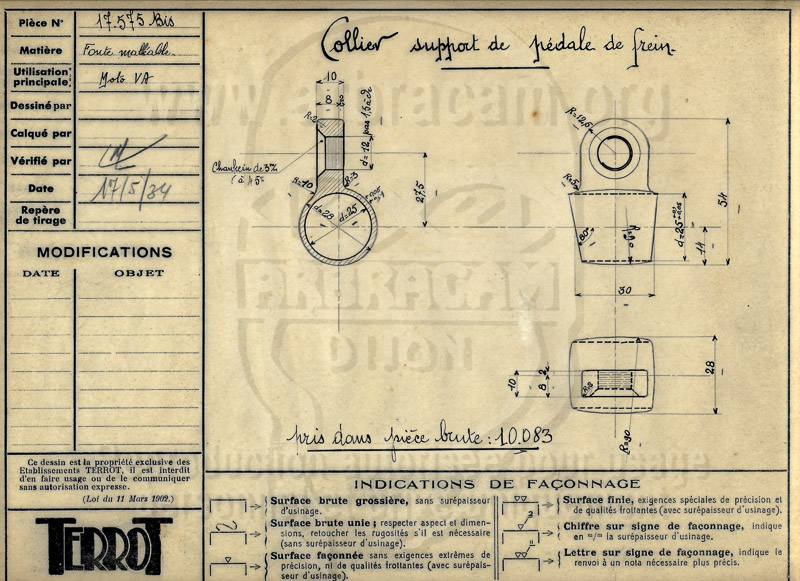 Pièce N° 17.575 Bis
Matière Fonte malléable.
Utilisation principale Moto VA
Dessiné par
Calqué par
Vérifié par
Date 17/5/34
Repère de tirage
MODIFICATIONS
DATE OBJET
Collier support de pédale de frein.
10
8 2
R=2
d=12, pas 1,5
Chanfrein de 3%
à 45°
R=10
R=3
d=28 d=25
27,5
R=12,5
R=5
80°
d=25
14
54
30
10
8 2
28
R=90
pris dans pièce brute : 10.083
Ce dessin est la propriété exclusive des
Etablissements TERROT, il est interdit
d'en faire usage ou de le communiquer
sans autorisation expresse.
(Loi du 11 Mars 1902.)
TERROT
INDICATIONS DE FAÇONNAGE
Surface brute grossière, sans surépaisseur
d'usinage.
Surface brute unie ; respecter aspect et dimen-
sions, retoucher les rugosités s'il est nécessaire
(sans surépaisseur d'usinage).
Surface façonnée sans exigences extrêmes de
précision, ni de qualités frottantes (avec surépais-
seur d'usinage).
Surface finie, exigences spéciales de précision et
de qualités frottantes (avec surépaisseur d'usinage).
3
Chiffre sur signe de façonnage, indique
en m/m la surépaisseur d'usinage).
Lettre sur signe de façonnage, indique le
renvoi à un nota nécessaire plus précis.
www.arbracam.org
ARBRACAM
DIJON